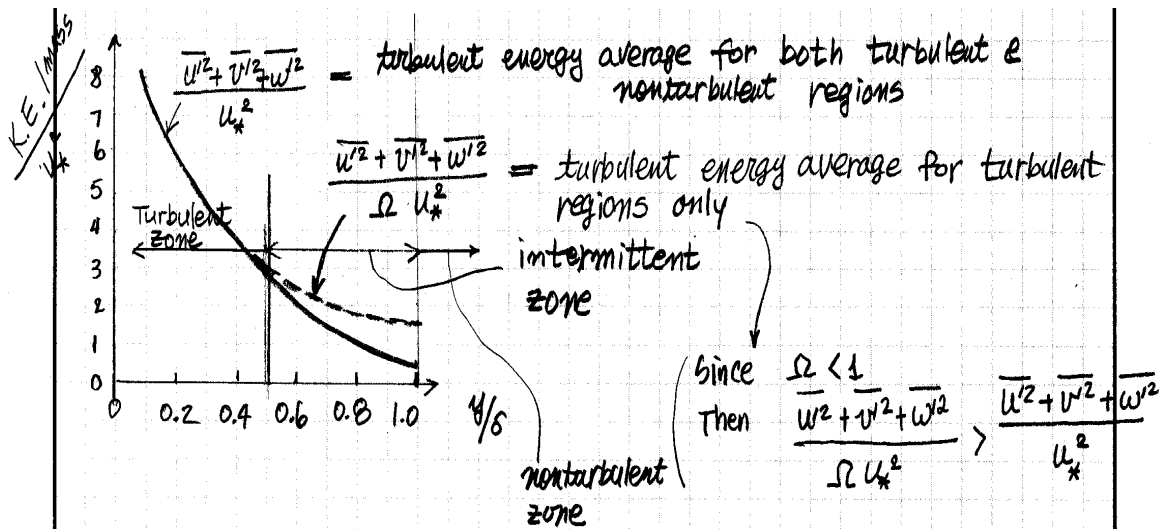 K.E./mass
u*
8
7
6
5
4
3
2
1
0
0 0.2 0.4 0.6 0.8 1.0 y/δ
(u'² + v'² + w'²)‾ / u*² = turbulent energy average for both turbulent &
nonturbulent regions
(u'² + v'² + w'²)‾ / Ω u*² = turbulent energy average for turbulent
regions only
Turbulent
zone
intermittent
zone
nonturbulent
zone
Since Ω < 1
Then (u'² + v'² + w'²)‾ / Ω u*² > (u'² + v'² + w'²)‾ / u*²